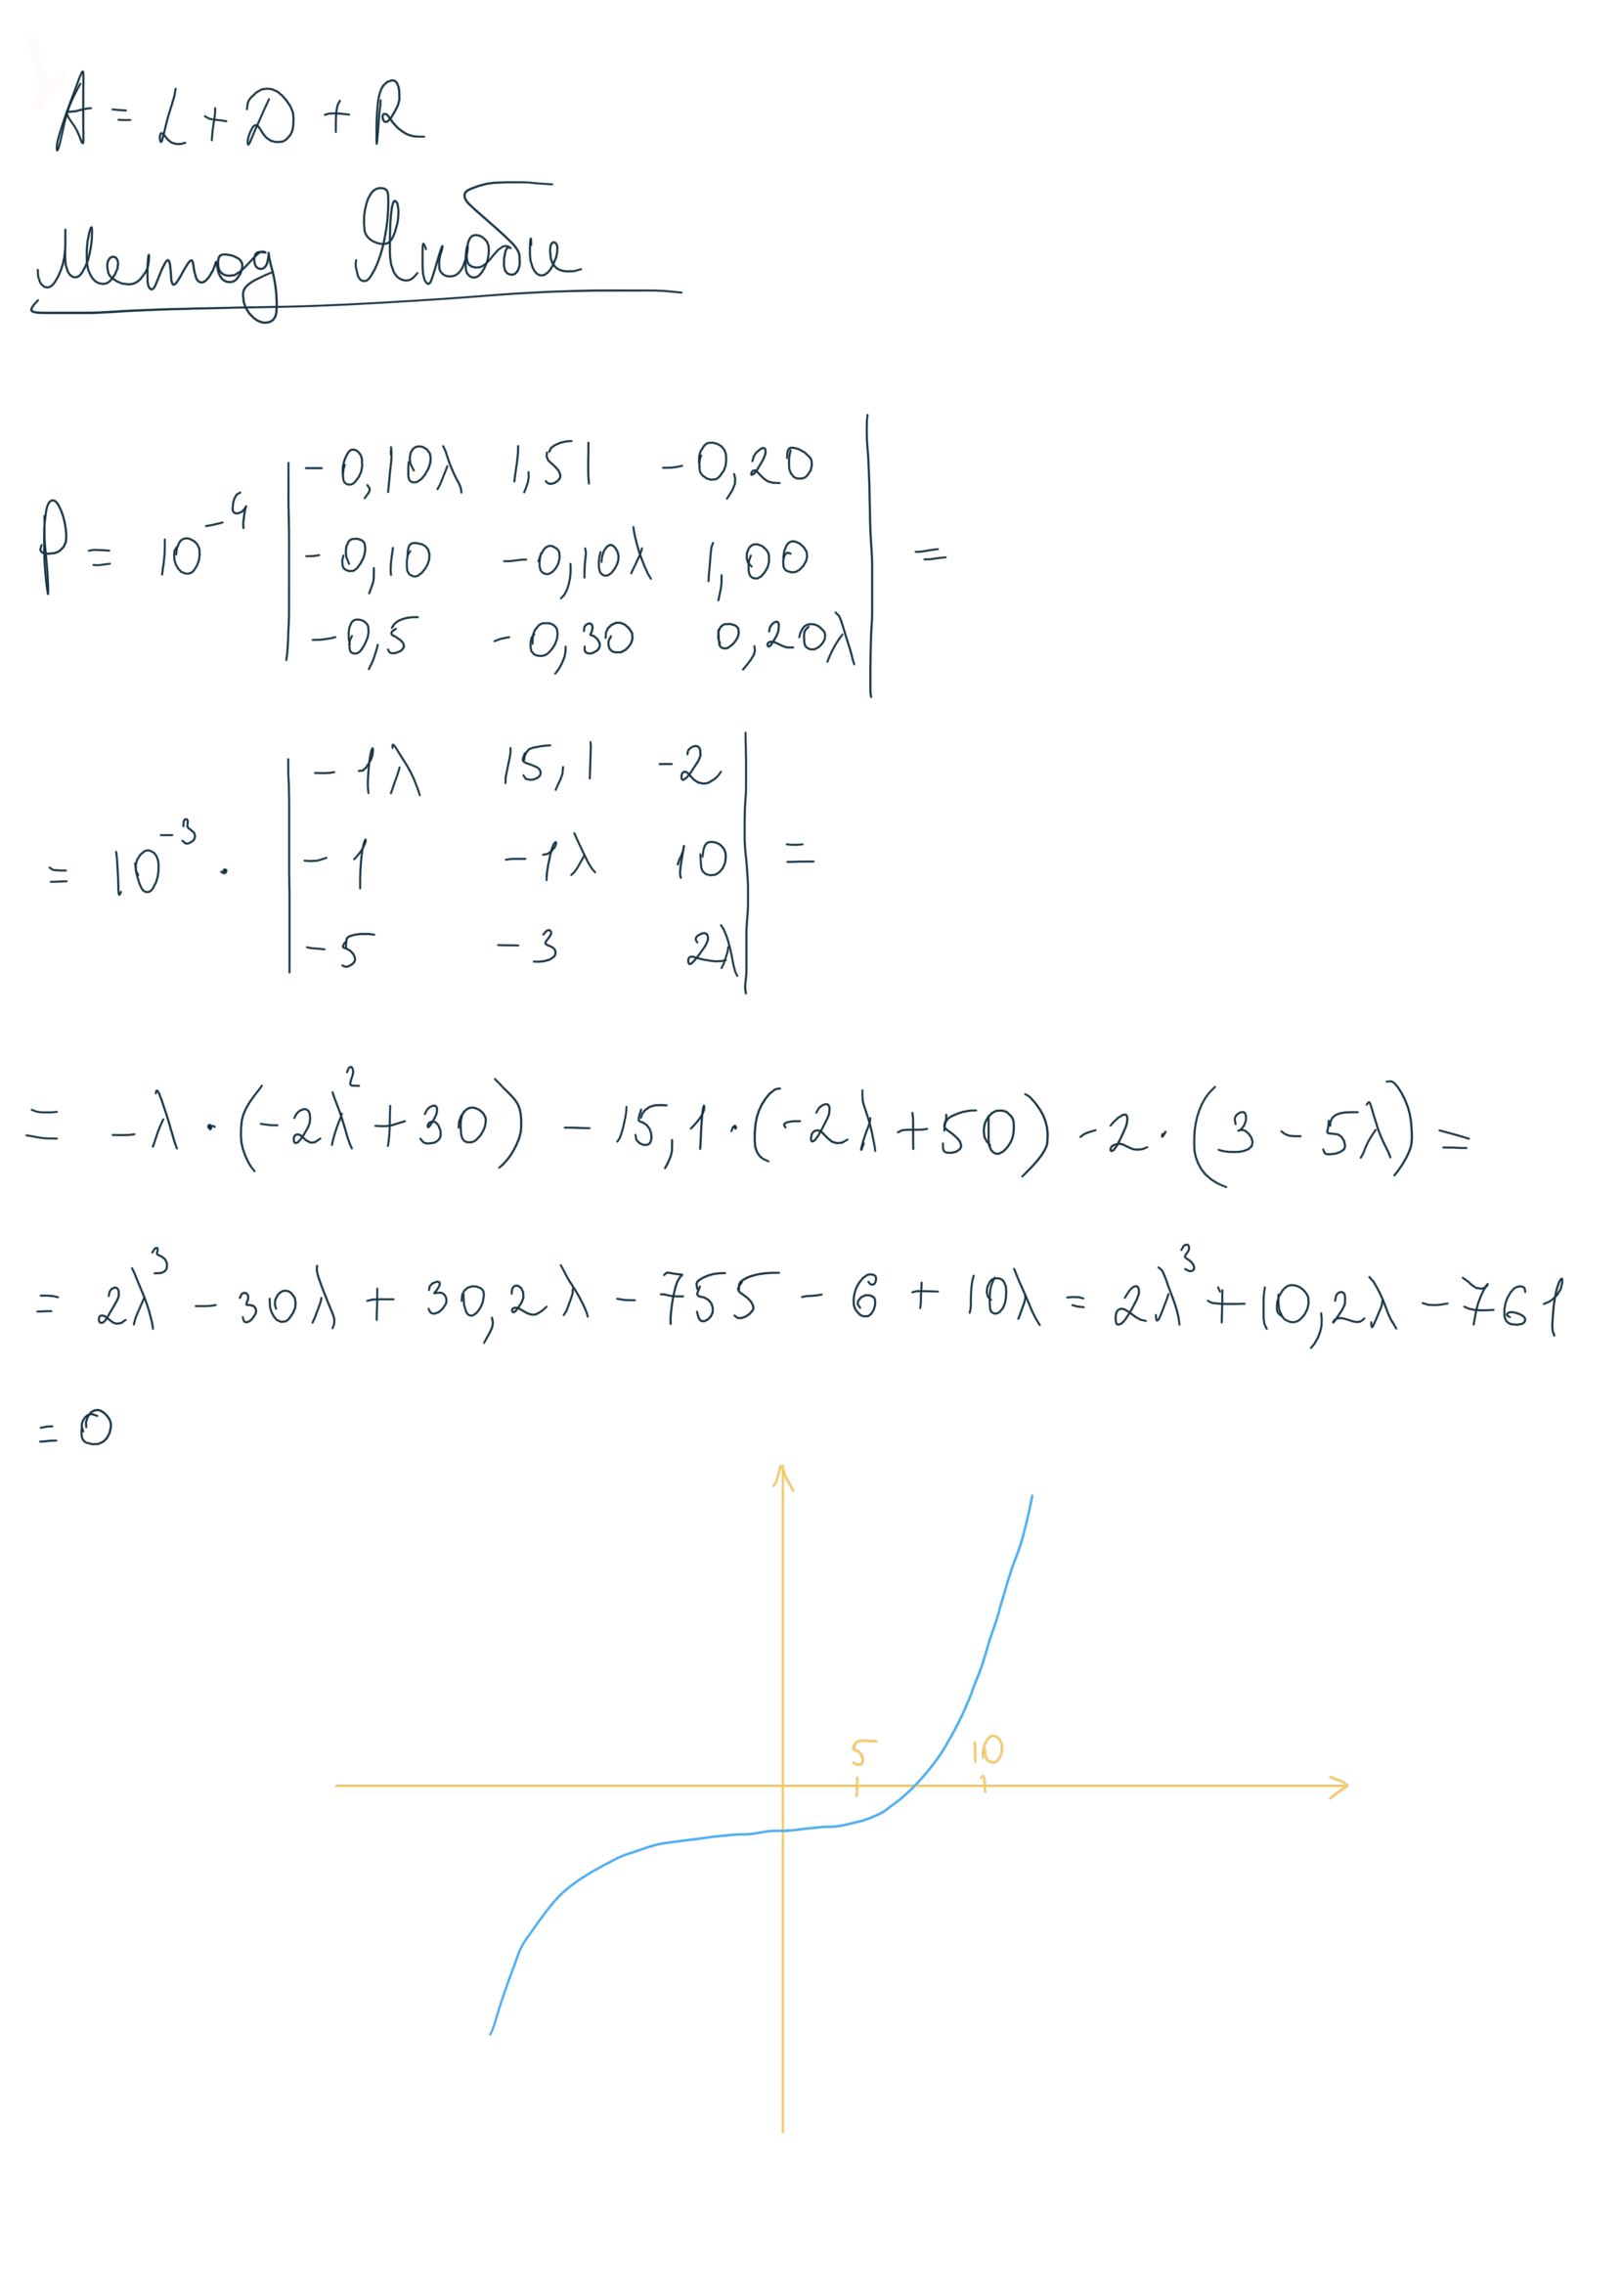 A = L + D + R
Метод Якоби
P = 10⁻⁴ | -0,10λ 1,51 -0,20 | =
| -0,10 -0,10λ 1,00 |
| -0,5 -0,30 0,20λ |
= 10⁻³ · | -1λ 15,1 -2 | =
| -1 -1λ 10 |
| -5 -3 2λ |
= -λ · (-2λ² + 30) - 15,1 · (-2λ + 50) - 2 · (3 - 5λ) =
= 2λ³ - 30λ + 30,2λ - 755 - 6 + 10λ = 2λ³ + 10,2λ - 761
= 0
5 10